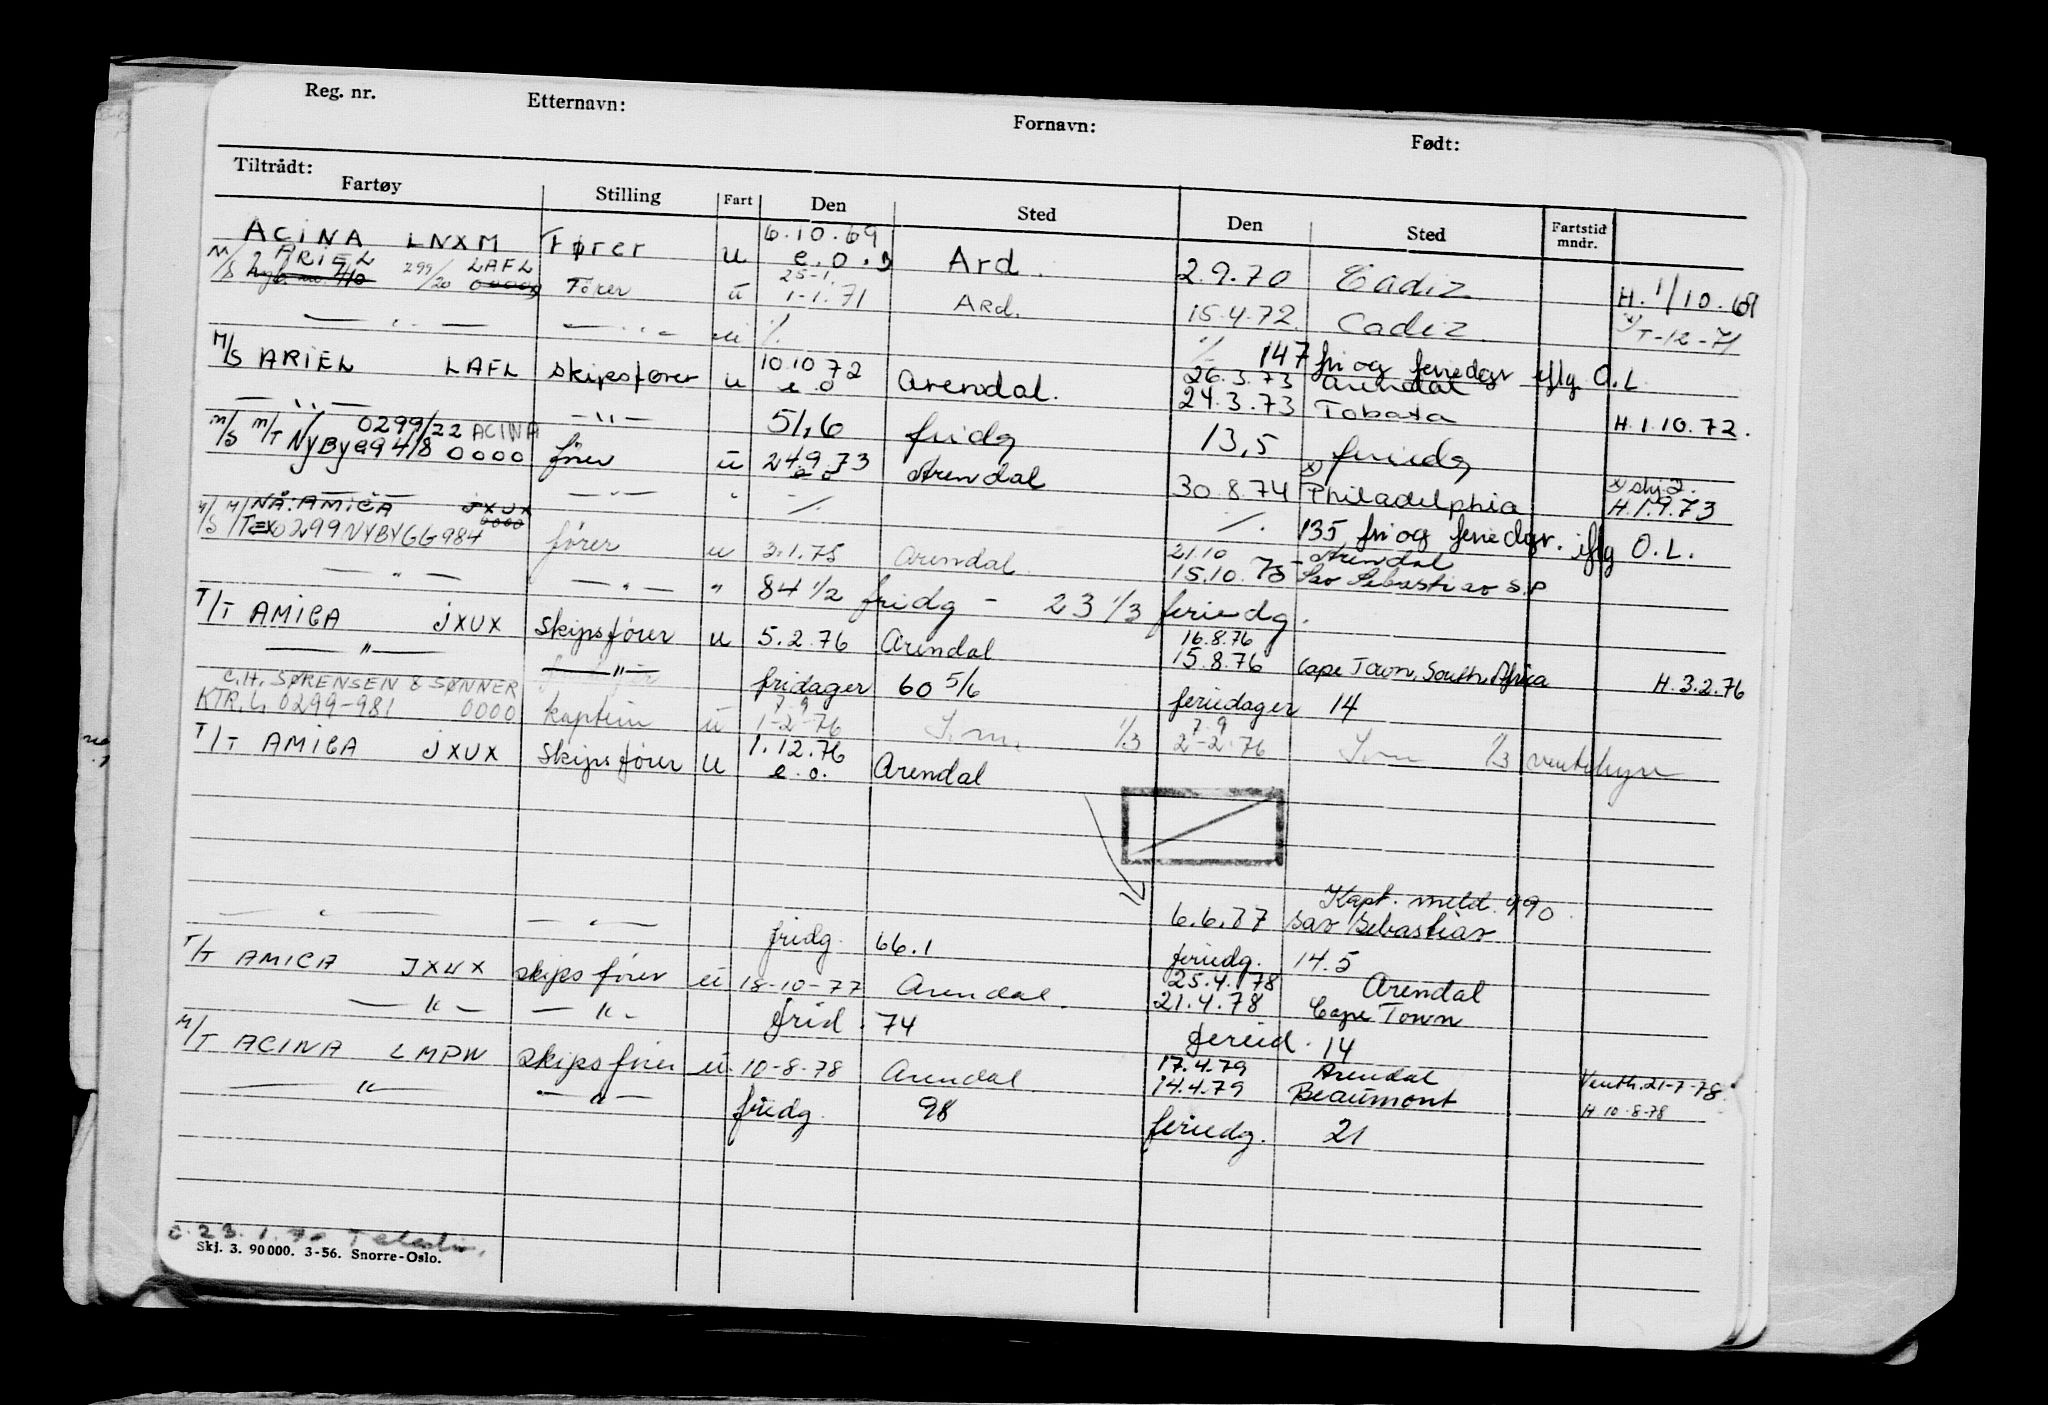 Reg. nr. Etternavn: Fornavn: Født:
Tiltrådt:
Fartøy Stilling Fart Den Sted Den Sted Fartstid mndr.
6.10.69
ACINA LNXM Fører u e.o. Ard. 2.9.70 Cadiz H. 1/10.69
M/S ARIEL 299/20 LAFL 0000 Fører ü 25-1. 1-1.71 Ard. 15.4.72 Cadiz x) T-12-71
— " — — " — ü ./. ./. 147 fri og feriedgr iflg O.L
M/S ARIEL LAFL skipsfører u 10.10 72 e o Arendal. 26.3.73 Arendal
— " — — " — 24.3.73 Tobata H.1.10.72.
51,6 fridg 13,5 feriedg
0299/22 ACINA
M/S M/T Nybygg 418 0000 fører ü 24.9.73 e o Arendal 30.8.74 x) Philadelphia x) skj.2. H.1.9.73
— " — — " — " ./. ./. 135 fri og feriedgr. iflg O.L.
NÅ: AMICA JXUX 0000
M/S M/T 0299 NYBYGG 984 fører u 2.1.75 Arendal 21.10 Arendal
— " — — " — " 15.10.75 Sao Sebastiao S.P
84 1/2 fridg - 23 1/3 feriedg.
T/T AMICA JXUX Skipsfører u 5.2.76 Arendal 16.8.76
— " — — " — 15.8.76 Cape Town, South Africa H.3.2.76
fridager 60 5/6 feriedager 14
C.H. SØRENSEN & SØNNER
KTR. L. 0299-981 0000 kaptein ü 7 9 1-2-76 1/3 7 9 2-2-76 1/3 ventehyre
T/T AMICA JXUX Skipsfører u 1.12.76 e.o. Arendal
Kapt. meld. 990
— " — — " — 6.6.77 Sao Sebastiao
fridg. 66.1 feriedg. 14.5
T/T AMICA JXUX skipsfører ü 18-10-77 Arendal. 25.4.78 Arendal
— " — — " — 21.4.78 Cape Town
frid. 74 feried. 14
M/T ACINA LMPW Skipsfører ü 10-8-78 Arendal 17.4.79 Arendal Venth. 21-7-78.
— " — — " — 14.4.79 Beaumont H 10-8-78
fridg. 98 feriedg. 21
23.1.
Skj. 3. 90 000. 3-56. Snorre-Oslo.